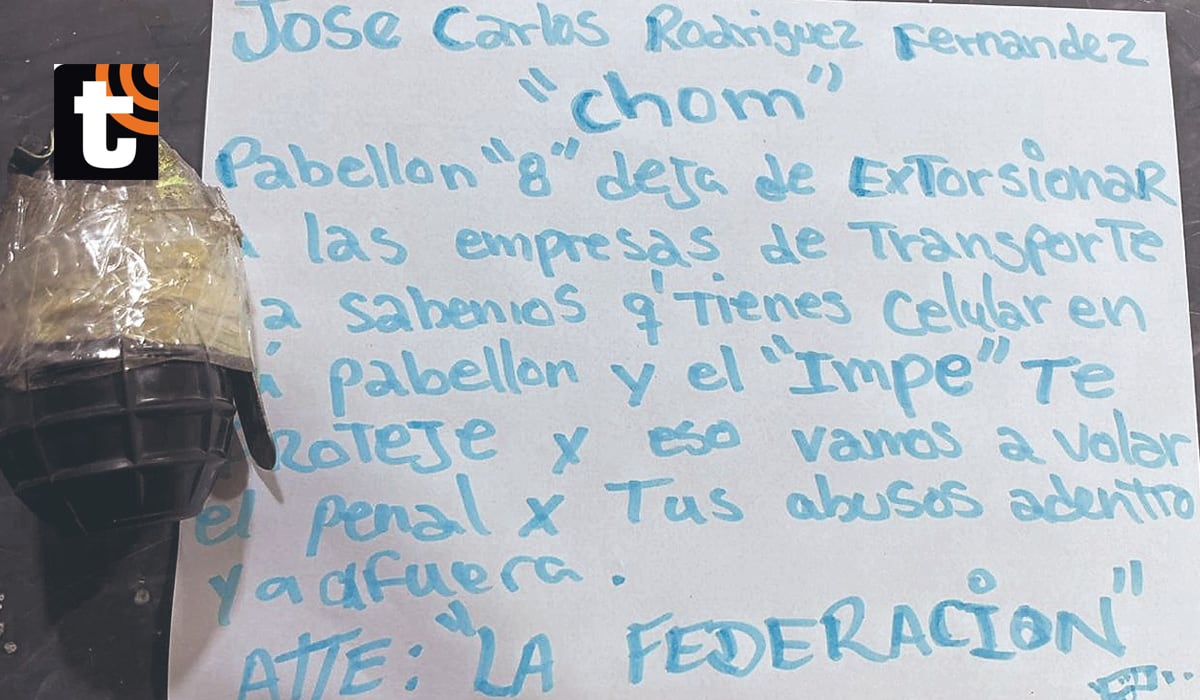 t
Jose Carlos Rodriguez Fernandez
"chom"
Pabellon "8" deja de ExTorsionaR
las empresas de TransporTe
a sabemos q' Tienes Celular en
pabellon y el "Impe" Te
ROTEJE x eso vamos a volar
el penal x Tus abusos adentro
y a afuera.
ATTE: "LA FEDERACION"